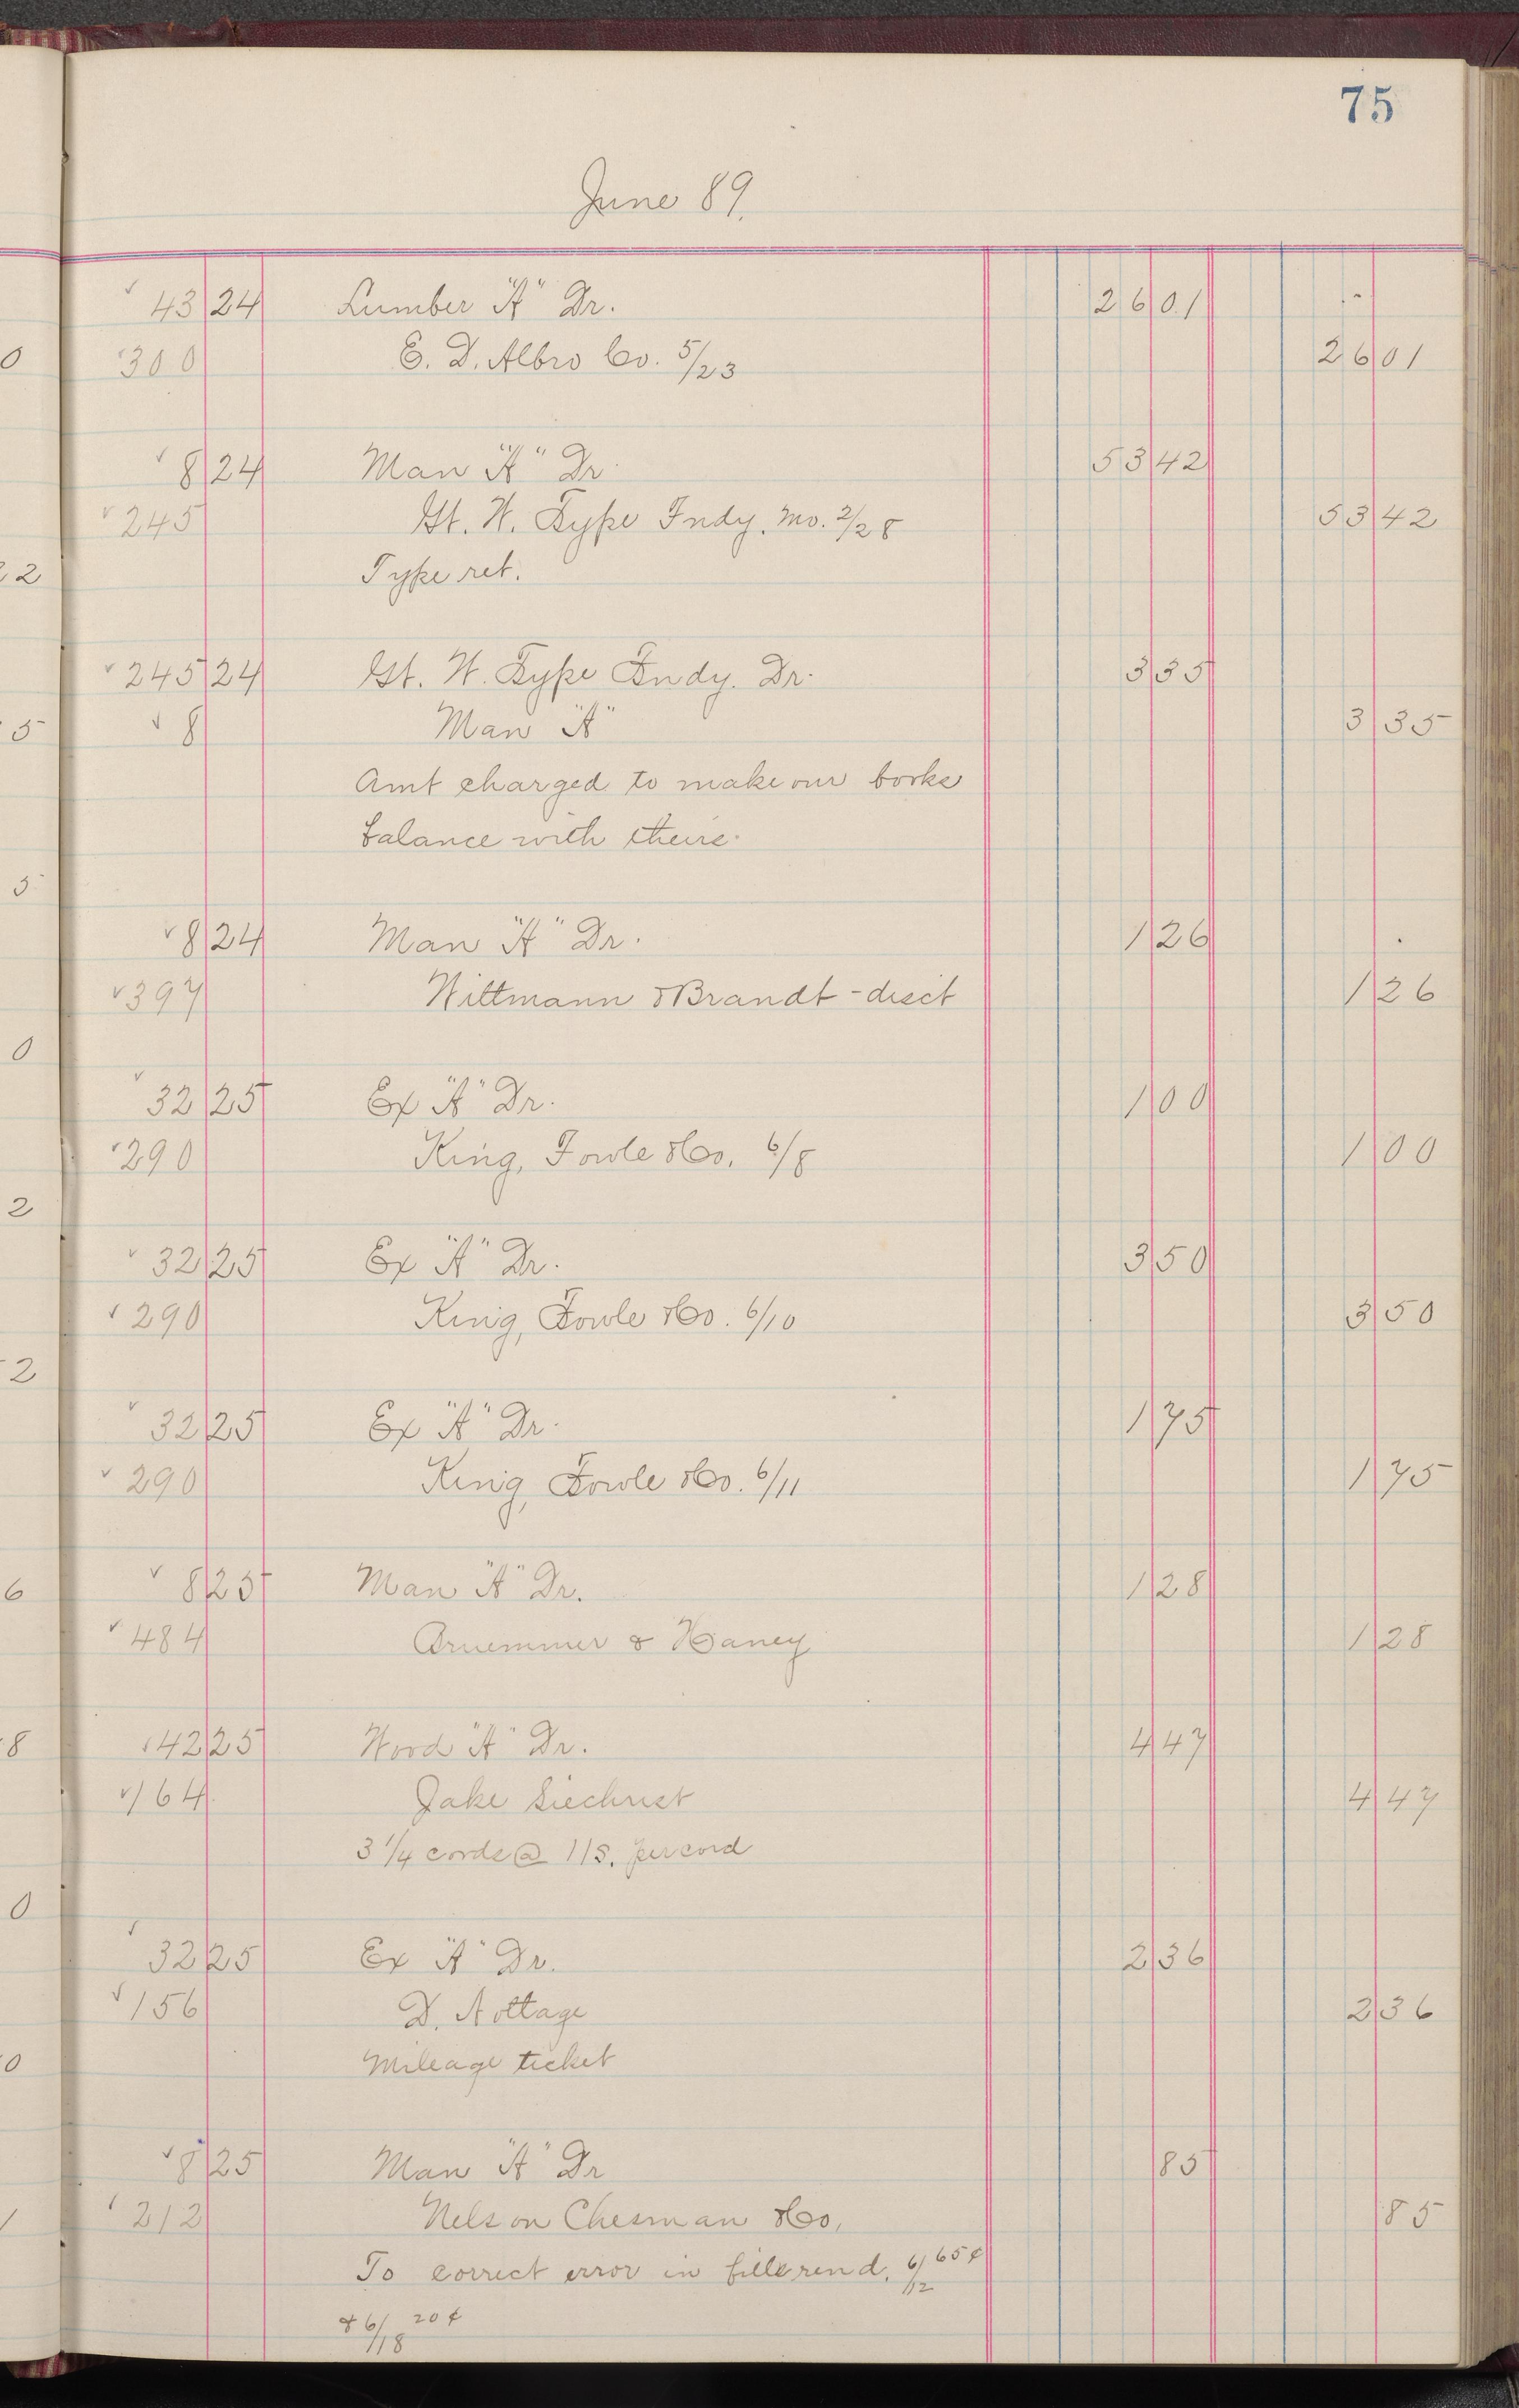 75
June 89.
43 24 Lumber "A" Dr. 26 01
300 E. D. Albro Co. 5/23 26 01
8 24 Man "A" Dr. 53 42
245 Gt. W. Type Fndy. Mo. 2/28 53 42
Type ret.
245 24 Gt. W. Type Fndy. Dr. 3 35
8 Man "A" 3 35
Amt charged to make our books
balance with theirs.
8 24 Man "A" Dr. 1 26
397 Wittmann & Brandt - disct 1 26
32 25 Ex "A" Dr. 1 00
290 King, Fowle & Co. 6/8 1 00
32 25 Ex "A" Dr. 3 50
290 King, Fowle & Co. 6/10 3 50
32 25 Ex "A" Dr. 1 75
290 King, Fowle & Co. 6/11 1 75
8 25 Man "A" Dr. 1 28
484 & Haney 1 28
42 25 Wood "A" Dr. 4 47
164 Jake Siechrist 4 47
3 1/4 cords @ 11s. per cord
32 25 Ex "A" Dr. 2 36
156 D. Nottage 2 36
Mileage ticket
8 25 Man "A" Dr 85
212 Nelson Chesman & Co. 85
To correct error in bills rend. 6/12 65¢
& 6/18 20¢